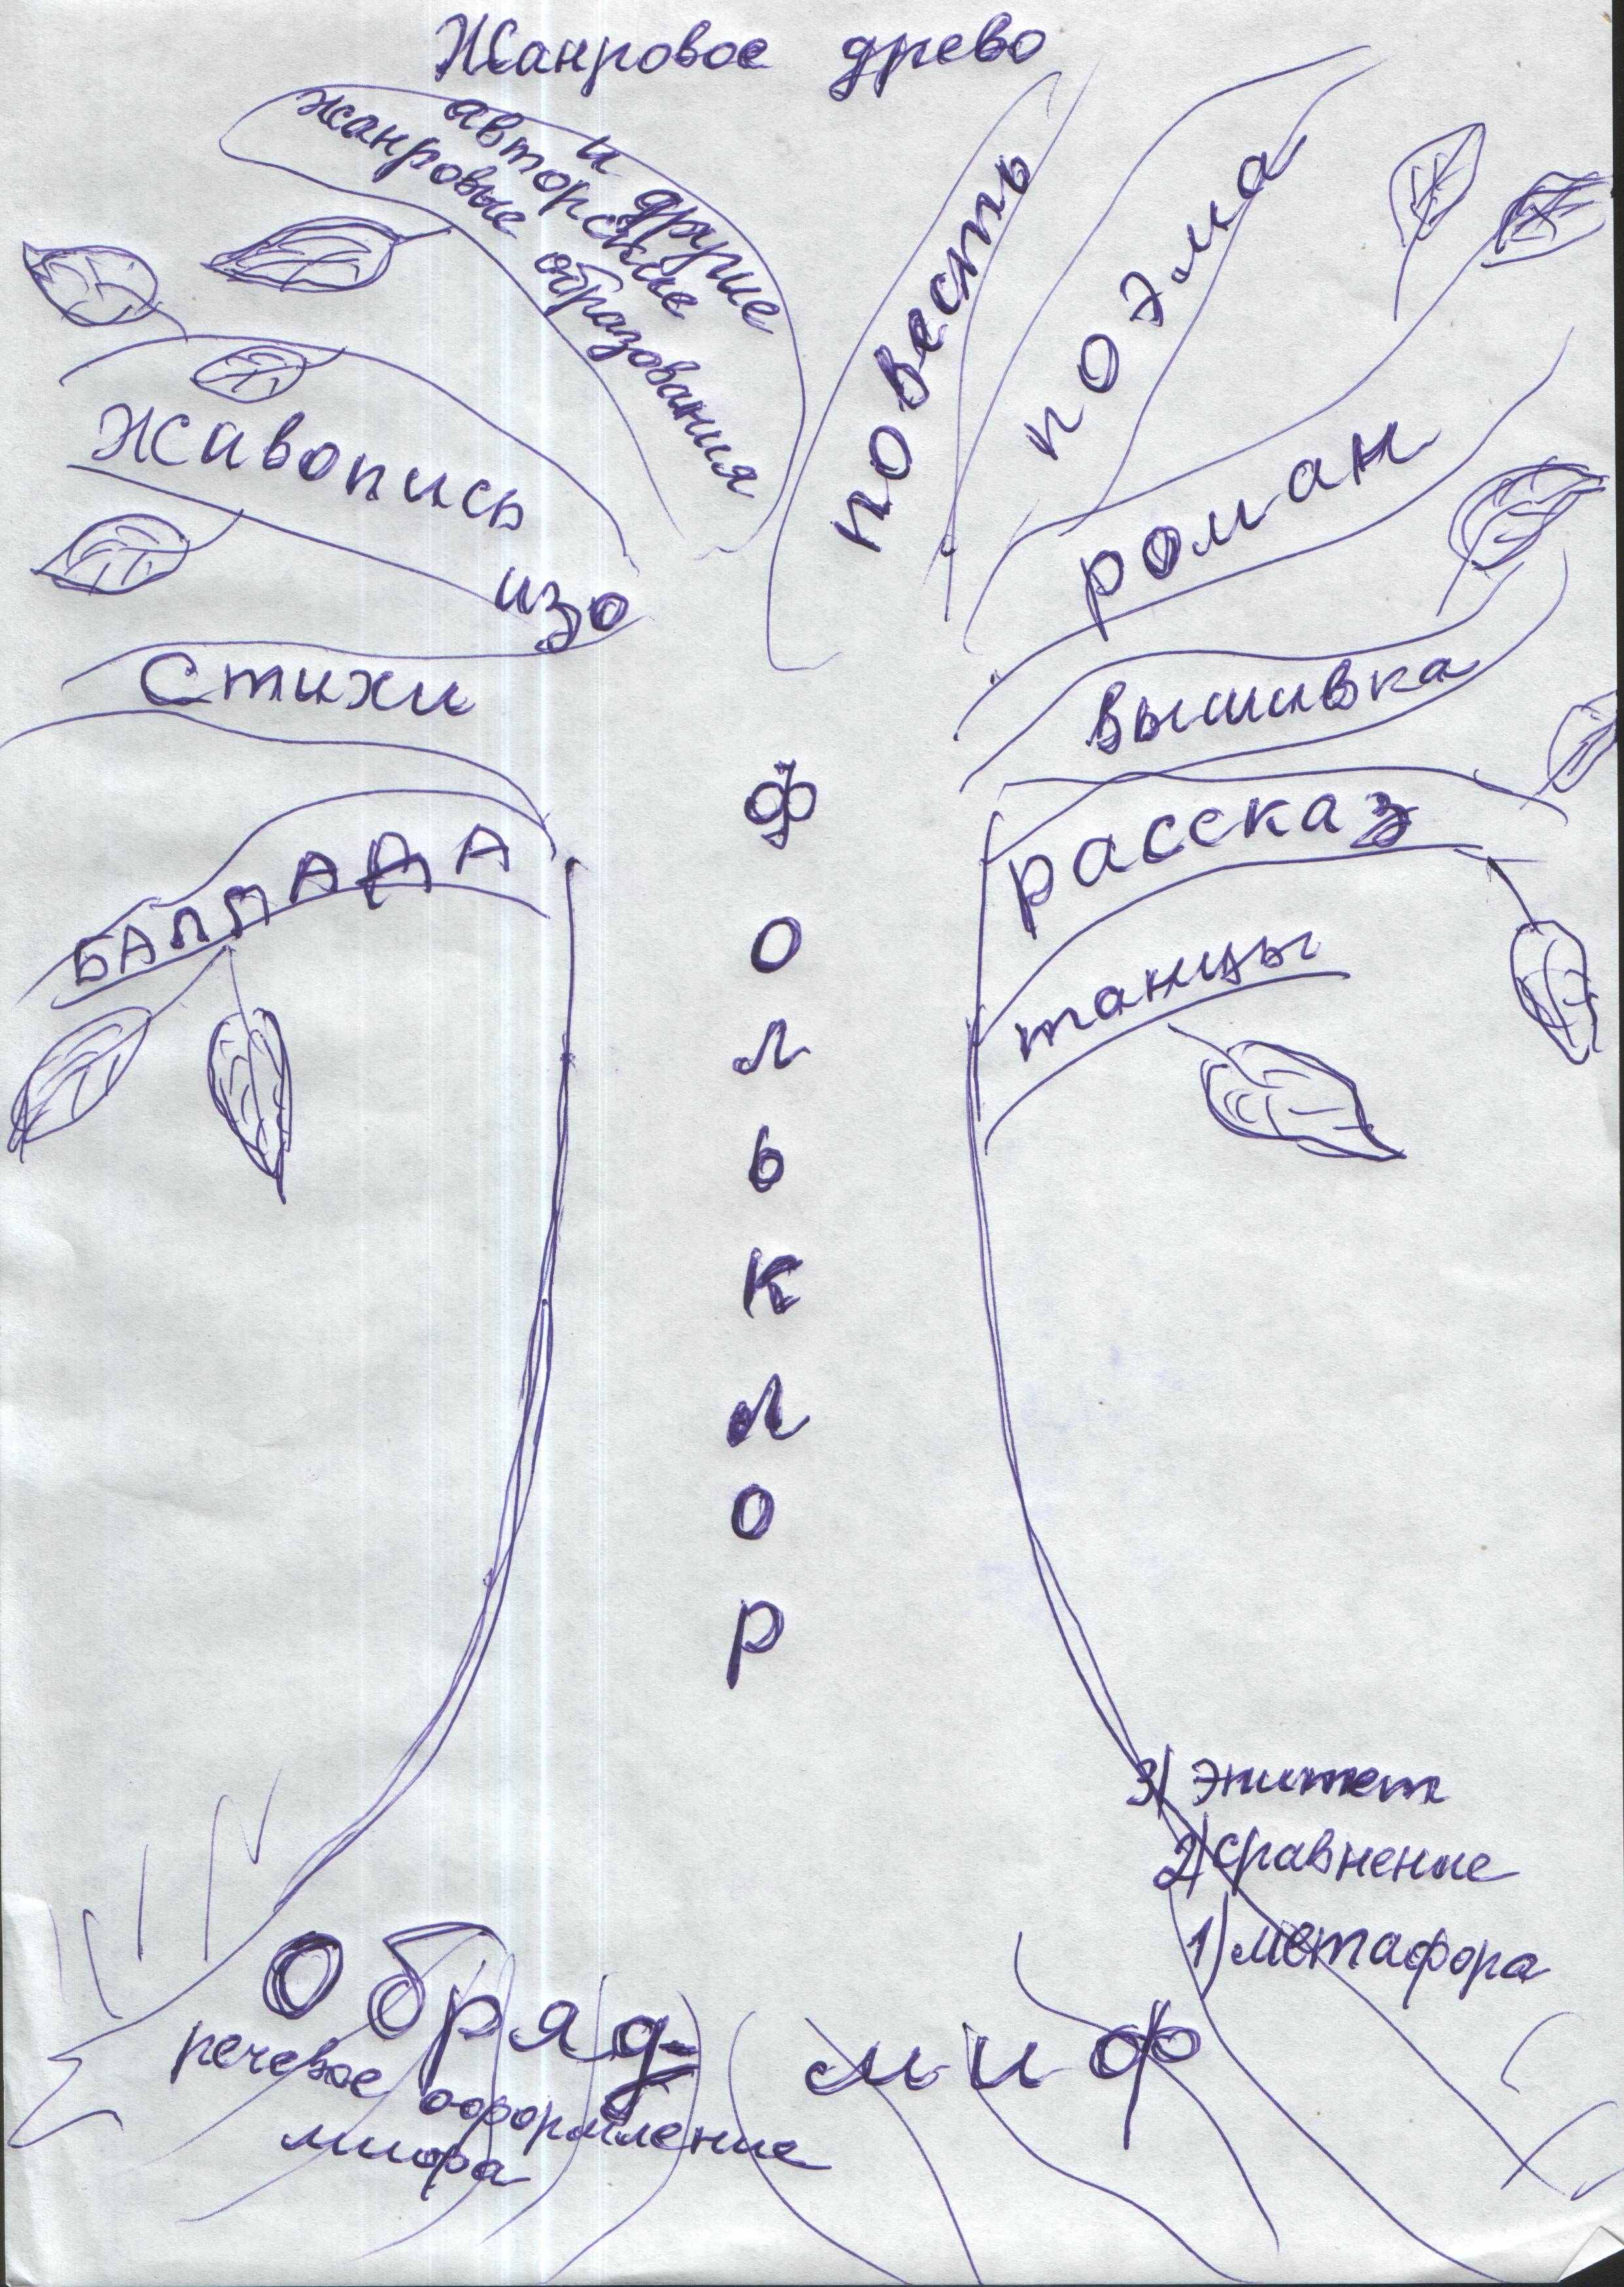 Жанровое древо
и другие
авторские
жанровые образования
повесть
поэма
Живопись
изо
роман
Стихи
вышивка
БАЛЛАДА
рассказ
танцы
фольклор
3) эпитет
2) сравнение
1) метафора
Обряд
миф
речевое оформление
мифа